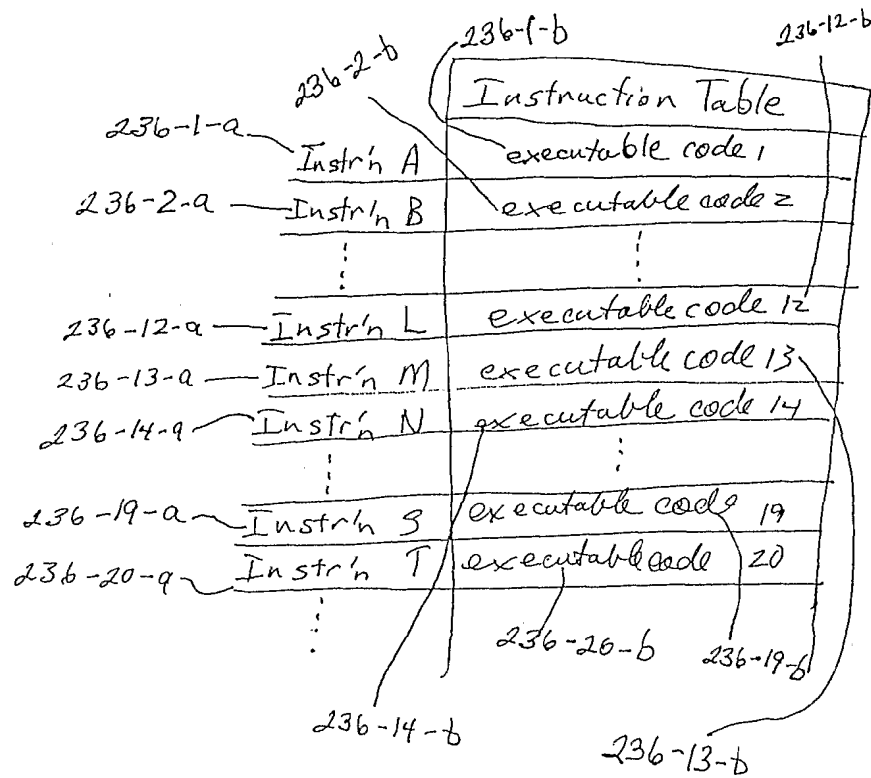 236-1-b
236-12-b
236-2-b
Instruction Table
236-1-a
Instr'n A
executable code 1
236-2-a
Instr'n B
executable code 2
236-12-a
Instr'n L
executable code 12
236-13-a
Instr'n M
executable code 13
236-14-a
Instr'n N
executable code 14
236-19-a
Instr'n S
executable code 19
236-20-a
Instr'n T
executable code 20
236-20-b
236-19-b
236-14-b
236-13-b